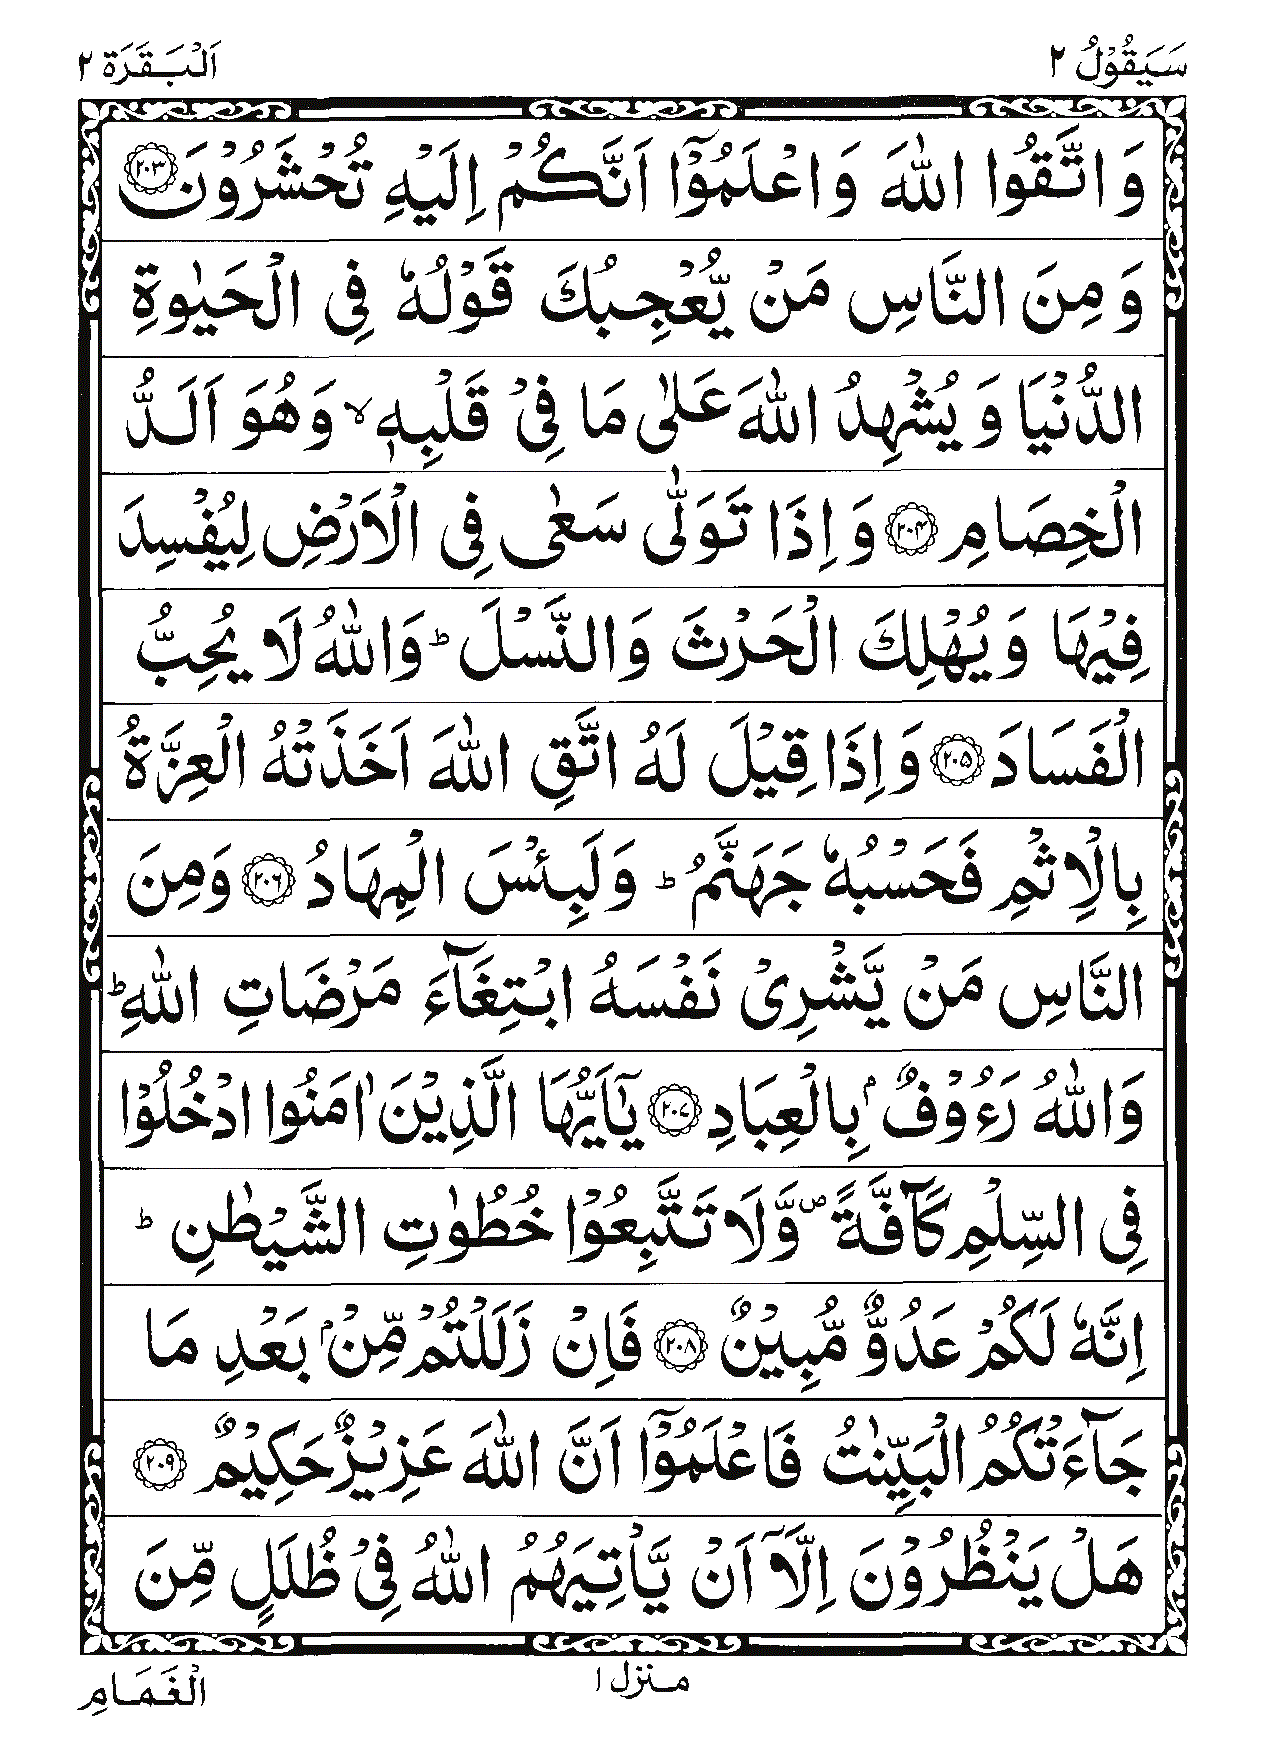 سَيَقُوْلُ ٢
اَلْبَقَرَة ٢
وَ اتَّقُوا اللّٰهَ وَ اعْلَمُوْۤا اَنَّكُمْ اِلَيْهِ تُحْشَرُوْنَ ۝۲۰۳
وَ مِنَ النَّاسِ مَنْ يُّعْجِبُكَ قَوْلُهٗ فِی الْحَيٰوةِ
الدُّنْيَا وَ يُشْهِدُ اللّٰهَ عَلٰى مَا فِیْ قَلْبِهٖ ۙ وَهُوَ اَلَدُّ
الْخِصَامِ ۝۲۰۴ وَ اِذَا تَوَلّٰى سَعٰى فِی الْاَرْضِ لِيُفْسِدَ
فِيْهَا وَ يُهْلِكَ الْحَرْثَ وَ النَّسْلَ ؕ وَاللّٰهُ لَا يُحِبُّ
الْفَسَادَ ۝۲۰۵ وَ اِذَا قِيْلَ لَهُ اتَّقِ اللّٰهَ اَخَذَتْهُ الْعِزَّةُ
بِالْاِثْمِ فَحَسْبُهٗ جَهَنَّمُ ؕ وَلَبِئْسَ الْمِهَادُ ۝۲۰۶ وَمِنَ
النَّاسِ مَنْ يَّشْرِیْ نَفْسَهُ ابْتِغَآءَ مَرْضَاتِ اللّٰهِ ؕ
وَاللّٰهُ رَءُوْفٌۢ بِالْعِبَادِ ۝۲۰۷ يٰۤاَيُّهَا الَّذِيْنَ اٰمَنُوا ادْخُلُوْا
فِی السِّلْمِ كَآفَّةً ۪ وَّلَا تَتَّبِعُوْا خُطُوٰتِ الشَّيْطٰنِ ؕ
اِنَّهٗ لَكُمْ عَدُوٌّ مُّبِيْنٌ ۝۲۰۸ فَاِنْ زَلَلْتُمْ مِّنْۢ بَعْدِ مَا
جَآءَتْكُمُ الْبَيِّنٰتُ فَاعْلَمُوْۤا اَنَّ اللّٰهَ عَزِيْزٌ حَكِيْمٌ ۝۲۰۹
هَلْ يَنْظُرُوْنَ اِلَّاۤ اَنْ يَّاْتِيَهُمُ اللّٰهُ فِیْ ظُلَلٍ مِّنَ
منزل ١
الْغَمَامِ